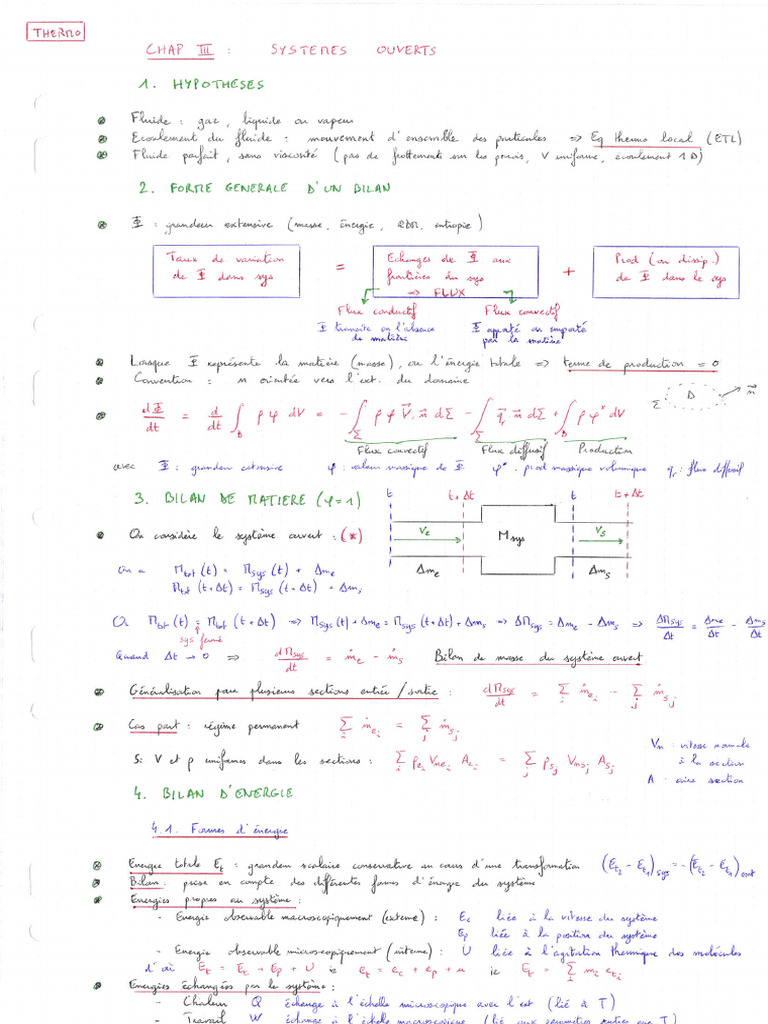 THERMO
CHAP III : SYSTEMES OUVERTS
1. HYPOTHESES
Fluide : gaz, liquide ou vapeur
Ecoulement du fluide : mouvement d'ensemble des particules => Eq thermo local (ETL)
Fluide parfait, sans viscosité (pas de frottements sur les parois, V uniforme, écoulement 1D)
2. FORME GENERALE D'UN BILAN
Φ : grandeur extensive (masse, énergie, QDM, entropie)
Taux de variation de Φ dans sys = Echanges de Φ aux frontières du sys => FLUX + Prod (ou dissip.) de Φ dans le sys
Flux conductif Flux convectif
Φ transite en l'absence de matière Φ apporté ou emporté par la matière
Lorsque Φ représente la matière (masse), ou l'énergie totale => terme de production = 0
Convention : n orientée vers l'ext. du domaine
Σ D n
dΦ/dt = d/dt ∫_D ρ φ dV = - ∫_Σ ρ φ V . n dΣ - ∫_Σ q_r n dΣ + ∫_D ρ φ* dV
Flux convectif Flux diffusif Production
avec Φ : grandeur extensive φ : valeur massique de Φ φ* : prod massique volumique q_r : flux diffusif
3. BILAN DE MATIERE (φ=1)
t t+Δt t t+Δt
On considère le système ouvert : (*)
V_e M_sys V_s
Δm_e Δm_s
On a M_tot(t) = M_sys(t) + Δm_e
M_tot(t+Δt) = M_sys(t+Δt) + Δm_s
Or M_tot(t) = M_tot(t+Δt) => M_sys(t) + Δm_e = M_sys(t+Δt) + Δm_s => ΔM_sys = Δm_e - Δm_s => ΔM_sys/Δt = Δm_e/Δt - Δm_s/Δt
sys fermé
Quand Δt → 0 => dM_sys/dt = ṁ_e - ṁ_s Bilan de masse du système ouvert
Généralisation pour plusieurs sections entrée/sortie : dM_sys/dt = Σ_i ṁ_ei - Σ_j ṁ_sj
Cas part : régime permanent Σ_i ṁ_ei = Σ_j ṁ_sj
Si V et ρ uniformes dans les sections : Σ_i ρ_ei V_nei A_ei = Σ_j ρ_sj V_nsj A_sj
V_n : vitesse normale à la section
A : aire section
4. BILAN D'ENERGIE
4.1. Formes d'énergie
Energie totale E_t : grandeur scalaire conservative au cours d'une transformation (E_t2 - E_t1)_sys = -(E_t2 - E_t1)_ext
Bilan : prise en compte des différentes formes d'énergie du système
Energies propres au système :
- Energie observable macroscopiquement (externe) : E_c liée à la vitesse du système
E_p liée à la position du système
- Energie observable microscopiquement (interne) : U liée à l'agitation thermique des molécules
d'où E_t = E_c + E_p + U ie e_t = e_c + e_p + u ie E_t = Σ_i m_i e_ti
Energies échangées par le système :
- Chaleur Q échange à l'échelle microscopique avec l'ext (lié à T)
- Travail W échange à l'échelle macroscopique (lié aux paramètres autres que T)